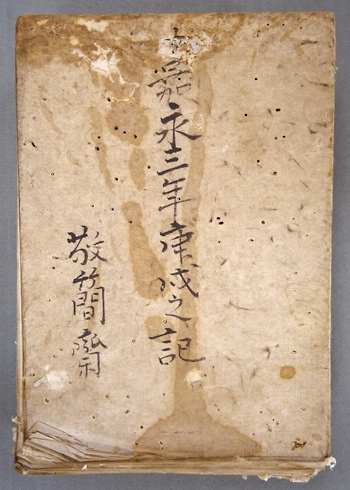 嘉永三年庚戌之記
敬簡齋